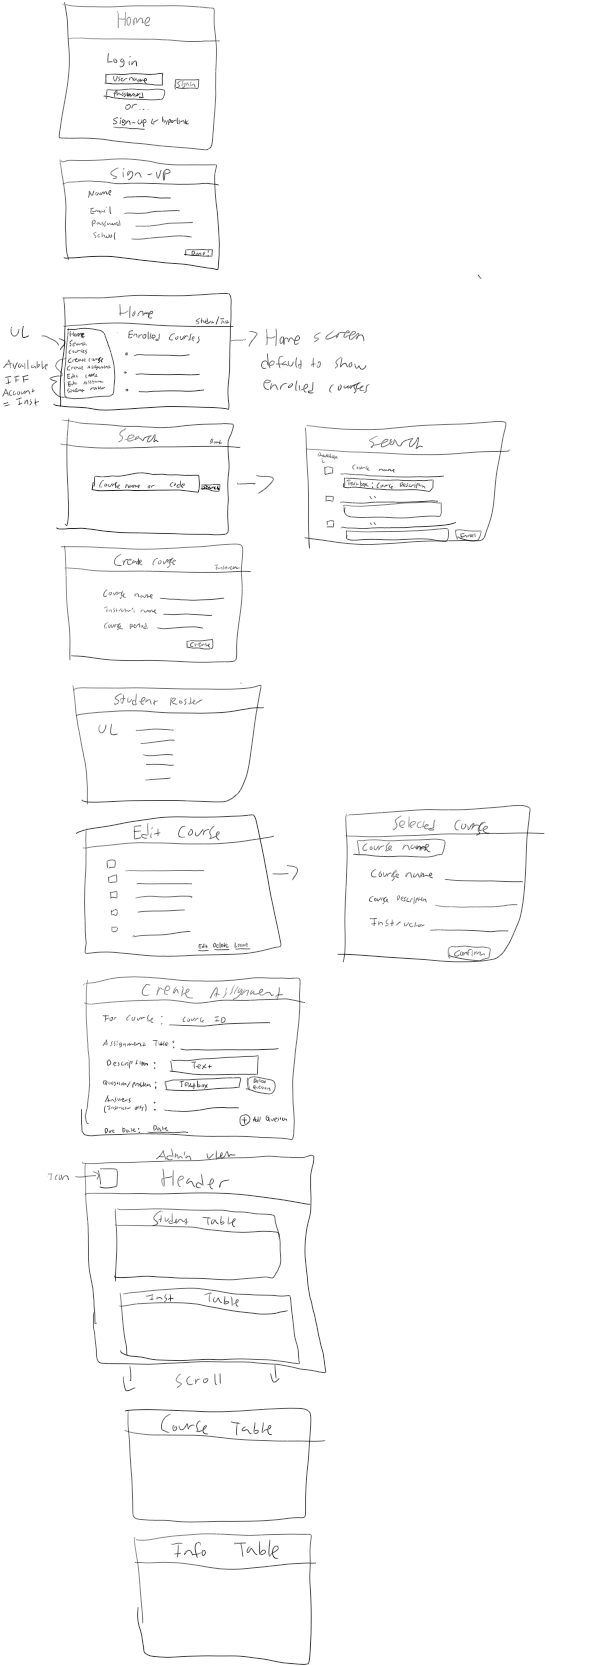 Home
Login
Username
Sign in
Password
or ...
Sign-up
Sign-up
Name
Email
Password
School
Done!
Home
UL
Home
Search
Courses
Create course
Create assignment
Edit course
Edit assignment
Student roster
Enrolled Courses
Available
IFF
Account
= Inst
Home screen
default to show
enrolled courses
Search
Course name or code
Search
Search
Course name
Textbox: Course Description
"
"
Enroll
Create course
Instructor
Course name
Instructor's name
Course period
Create
Student Roster
UL
Edit Course
Edit Delete
Selected Course
Course name
Course name
Course Description
Instructor
Confirm
Create Assignment
For course: Course ID
Assignment Title:
Description: Text
Question/problem: Textbox
Delete Question
Answers
(Instructor only):
+ Add Question
Due Date: Date
Admin view
Icon
Header
Student Table
Inst Table
Scroll
Course Table
Info Table